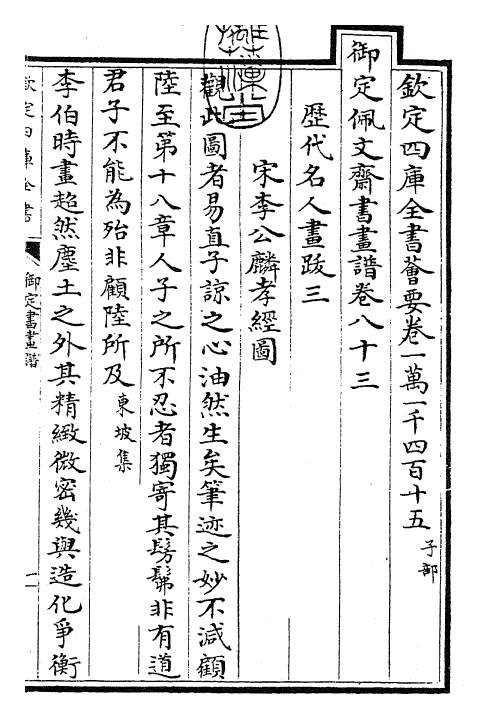 欽定四庫全書薈要卷一萬一千四百十五 子部
御定佩文齋書畫譜卷八十三
歷代名人畫跋三
宋李公麟孝經圖
觀此圖者易直子諒之心油然生矣筆迹之妙不減顧
陸至第十八章人子之所不忍者獨寄其髣髴非有道
君子不能為殆非顧陸所及東坡集
李伯時畫超然塵土之外其精緻微密幾與造化爭衡
欽定四庫全書
御定書畫譜
一